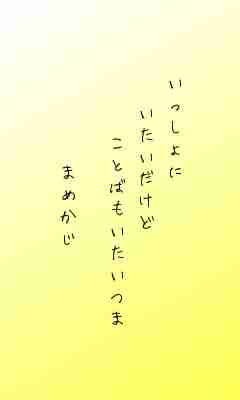 いっしょに
いたいだけど
ことばもいたいつま
まめかじ